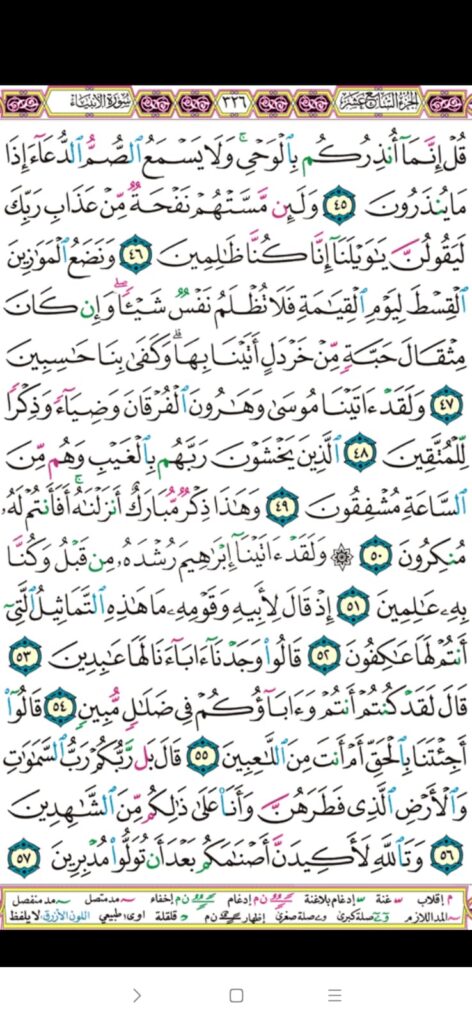 سورة الأنبياء ٣٢٦ الجزء السابع عشر
قُلْ إِنَّمَآ أُنذِرُكُم بِٱلْوَحْىِ ۚ وَلَا يَسْمَعُ ٱلصُّمُّ ٱلدُّعَآءَ إِذَا
مَا يُنذَرُونَ ٤٥ وَلَئِن مَّسَّتْهُمْ نَفْحَةٌ مِّنْ عَذَابِ رَبِّكَ
لَيَقُولُنَّ يَٰوَيْلَنَآ إِنَّا كُنَّا ظَٰلِمِينَ ٤٦ وَنَضَعُ ٱلْمَوَٰزِينَ
ٱلْقِسْطَ لِيَوْمِ ٱلْقِيَٰمَةِ فَلَا تُظْلَمُ نَفْسٌ شَيْـًٔا ۖ وَإِن كَانَ
مِثْقَالَ حَبَّةٍ مِّنْ خَرْدَلٍ أَتَيْنَا بِهَا ۗ وَكَفَىٰ بِنَا حَٰسِبِينَ
٤٧ وَلَقَدْ ءَاتَيْنَا مُوسَىٰ وَهَٰرُونَ ٱلْفُرْقَانَ وَضِيَآءً وَذِكْرًا
لِّلْمُتَّقِينَ ٤٨ ٱلَّذِينَ يَخْشَوْنَ رَبَّهُم بِٱلْغَيْبِ وَهُم مِّنَ
ٱلسَّاعَةِ مُشْفِقُونَ ٤٩ وَهَٰذَا ذِكْرٌ مُّبَارَكٌ أَنزَلْنَٰهُ ۚ أَفَأَنتُمْ لَهُۥ
مُنكِرُونَ ٥٠ ۞ وَلَقَدْ ءَاتَيْنَآ إِبْرَٰهِيمَ رُشْدَهُۥ مِن قَبْلُ وَكُنَّا
بِهِۦ عَٰلِمِينَ ٥١ إِذْ قَالَ لِأَبِيهِ وَقَوْمِهِۦ مَا هَٰذِهِ ٱلتَّمَاثِيلُ ٱلَّتِىٓ
أَنتُمْ لَهَا عَٰكِفُونَ ٥٢ قَالُوا۟ وَجَدْنَآ ءَابَآءَنَا لَهَا عَٰبِدِينَ ٥٣
قَالَ لَقَدْ كُنتُمْ أَنتُمْ وَءَابَآؤُكُمْ فِى ضَلَٰلٍ مُّبِينٍ ٥٤ قَالُوٓا۟
أَجِئْتَنَا بِٱلْحَقِّ أَمْ أَنتَ مِنَ ٱللَّٰعِبِينَ ٥٥ قَالَ بَل رَّبُّكُمْ رَبُّ ٱلسَّمَٰوَٰتِ
وَٱلْأَرْضِ ٱلَّذِى فَطَرَهُنَّ وَأَنَا۠ عَلَىٰ ذَٰلِكُم مِّنَ ٱلشَّٰهِدِينَ
٥٦ وَتَٱللَّهِ لَأَكِيدَنَّ أَصْنَٰمَكُم بَعْدَ أَن تُوَلُّوا۟ مُدْبِرِينَ ٥٧
م إقلاب غنة إدغام بلاغنة ن م إدغام ن م إخفاء مد متصل مد منفصل
المد اللازم صلة كبرى صلة صغرى إظهار ن م قلقلة اوى طبيعي اللون الأزرق لا يلفظ